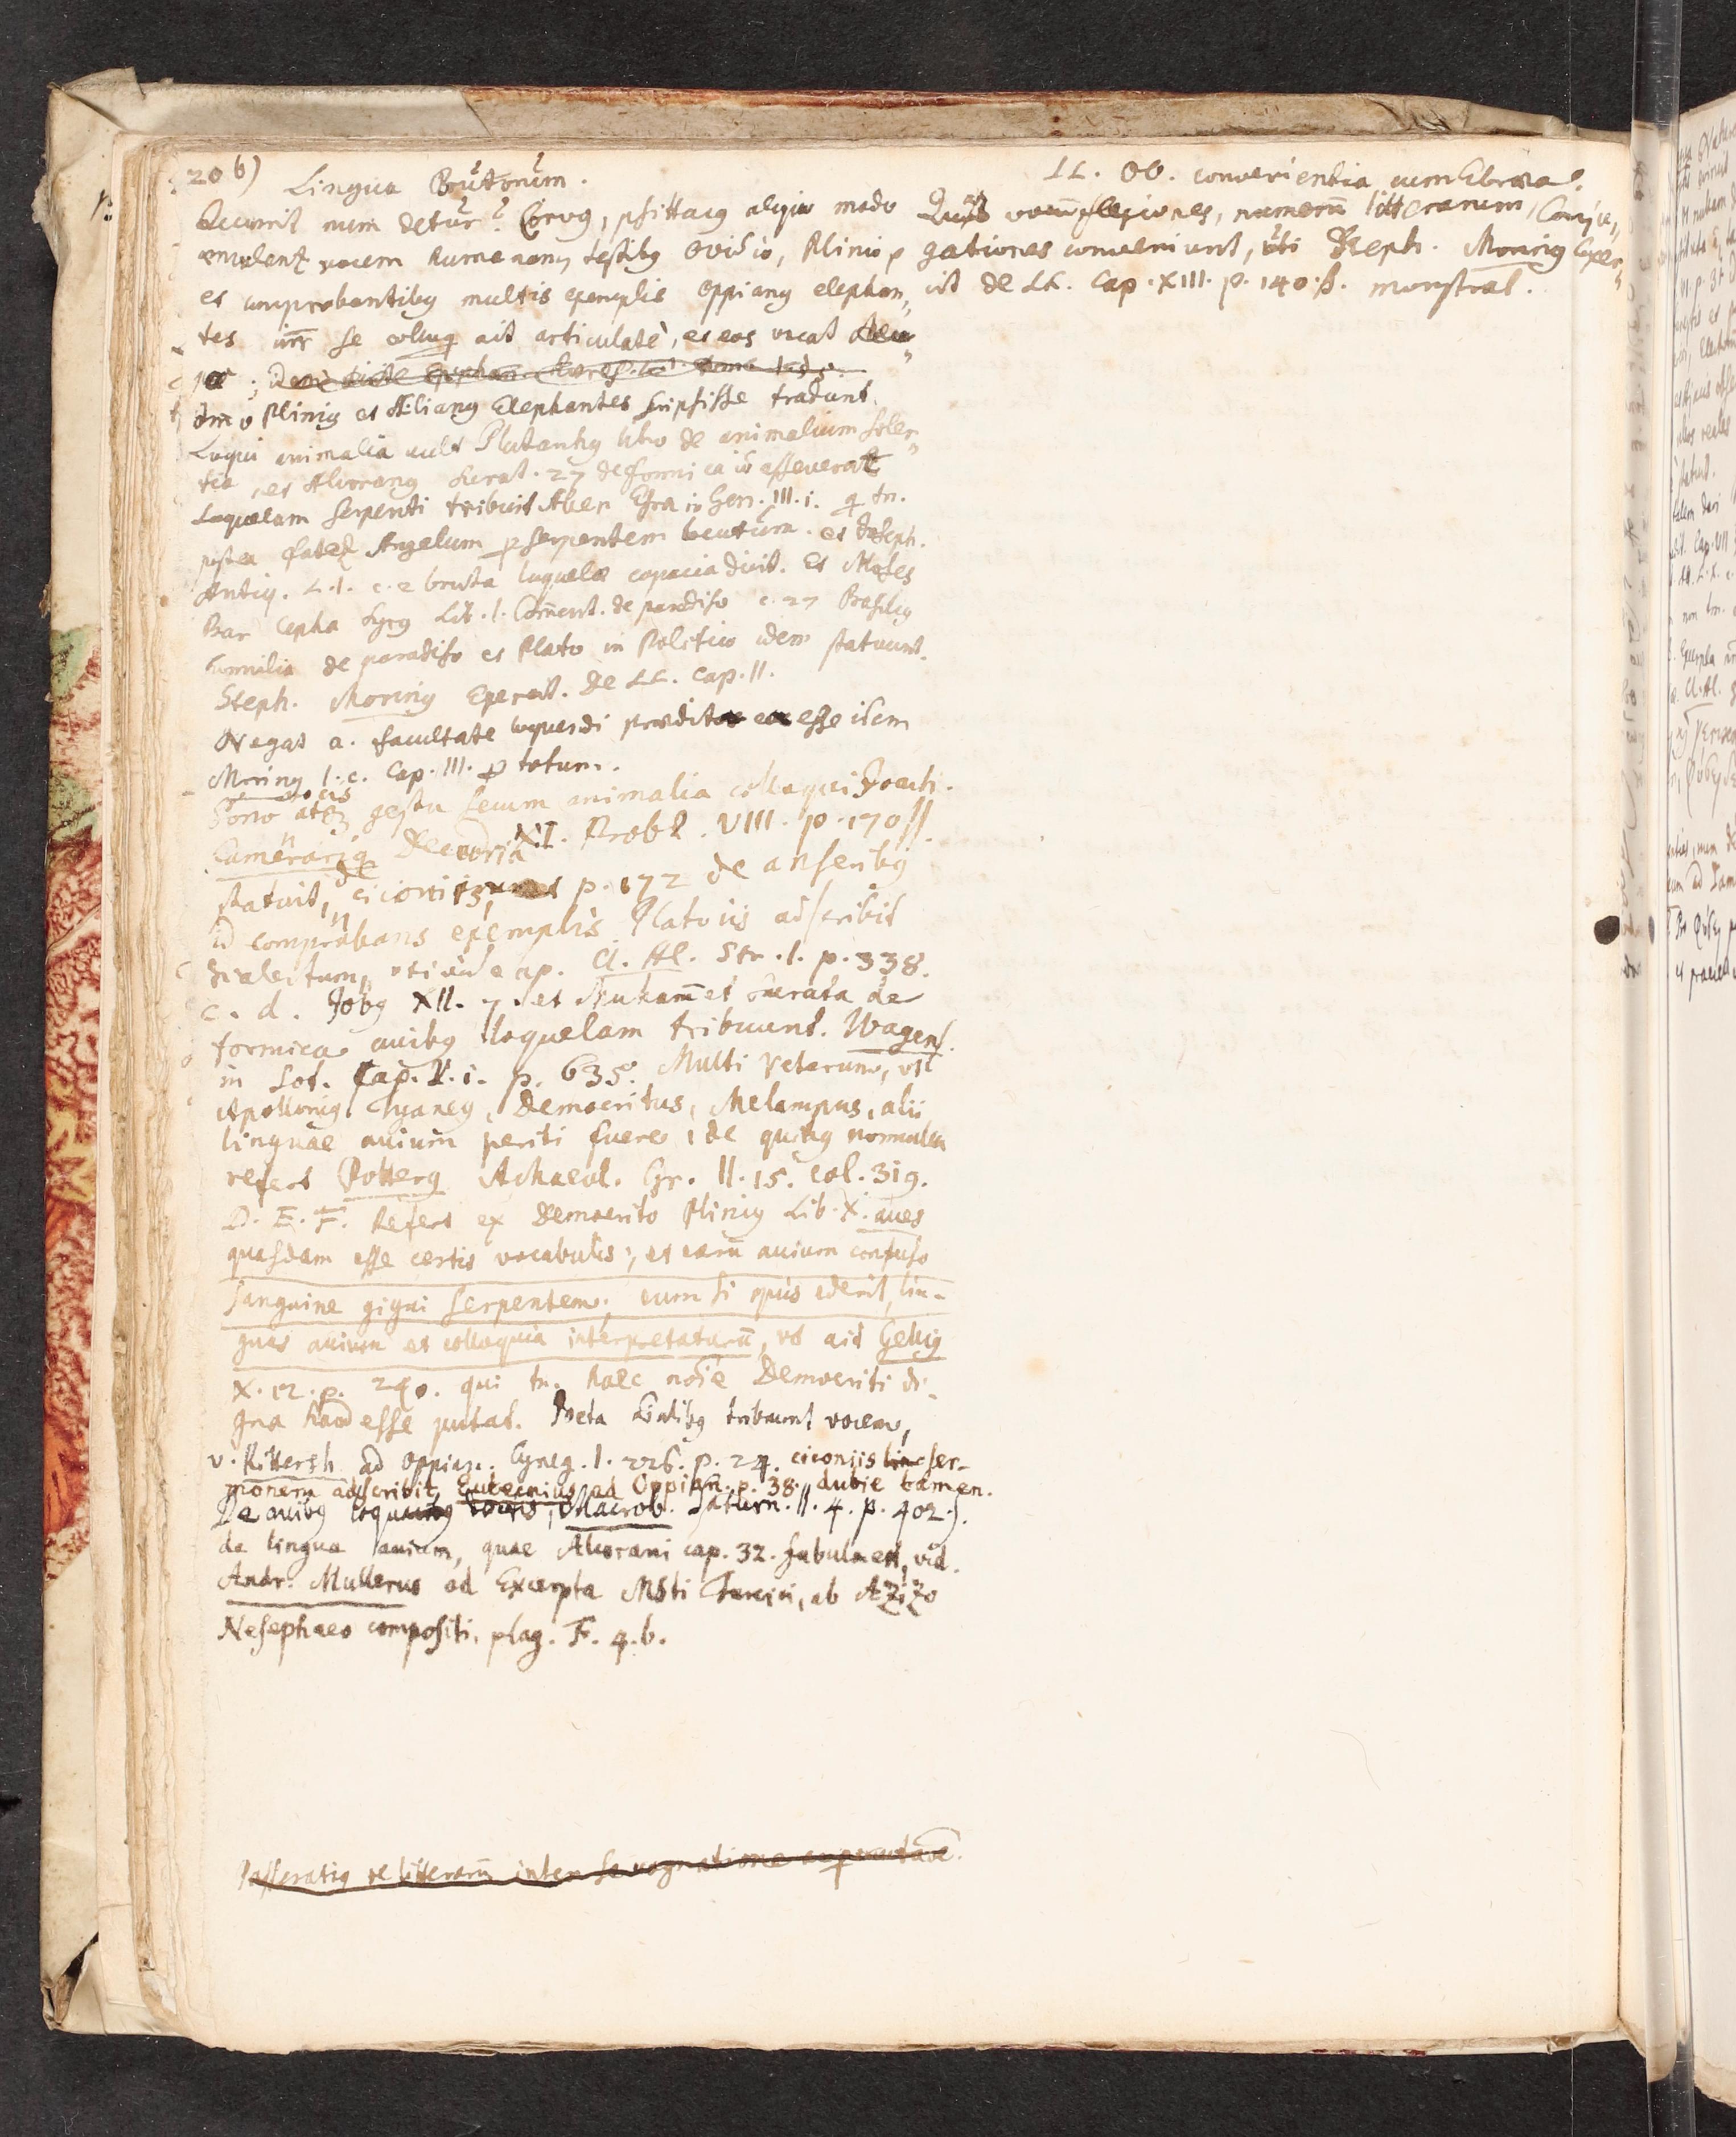 20 b) Lingua Brutorum.
Quaerit num detur? Corvus, psittacus aliquo modo
emulent vocem humanam, testibus Ovidio, Plinio
et comprobantibus multis exemplis Oppianus elephan„
tes inter se colloqui ait articulatè, et eos vocat
Plinius et Ælianus Elephantes scripsisse tradunt.
Loqui animalia vult Plutarchus libro de animalium soler„
tia, et Alcoranus Surat. 27 de formica id asseverat
Loquelam serpenti tribuit Aben Esra in Gen. III. 1. q tn.
postea fatet Angelum p serpentem locutum. et Joseph.
Antiq. L. 1. c. 2 bruta loquelae capacia dicit. Et Moses
Bar Cepha Syrus Lib. 1. Coment. de paradiso c. 27 Basilius
homilia de paradiso et Plato in Politico idem statuunt.
Steph. Morinus Exercit. de LL. Cap. II.
Negat a. facultate loquendi praedita esse idem
Morinus l. c. Cap. III. p totum.
Sono atq gestu secum animalia colloqui Joach.
Camerarius Decuria XI. Probl. VIII. p. 170 ff.
statuit, de ciconiis p. 172 de anseribus
id comprobans exemplis. Platonis adscribit
dialectum, Cl. Al. Str. 1. p. 338.
c. d. Jobus XII. 7. et Muhamet surata de
formica avibus loquelam tribuunt. Wagens.
in Sot. Cap. V. 1. p. 635. Multi Veterum, uti
Apollonius Tyaneus, Democritus, Melampus, alii
linguae avium periti fuere, de quibus nonnulla
refert Potterus Achaeol. Gr. II. 15. col. 319.
D. E. F. Refert ex Democrito Plinius Lib. X. aves
quasdam esse certis vocabulis, et earum avium confuso
sanguine gigni serpentem; eum si quis ederit, lin-
guas avium et colloquia interpretaturum, ut ait Gellius
X. 12. p. 240. qui tn. haec noie Democriti di-
gna haud esse putat. Poeta tribuunt vocem,
v. Rittersh. ad Oppian. Cyneg. 1. 226. p. 24. ciconiis ser-
monem adscribit Eutecnius ad Oppian. p. 38. dubie tamen.
De avibus Macrob. Saturn. II. 4. p. 402. f.
de lingua avium, quae Alcorani cap. 32. fabula est, vid.
Andr. Mullerus ad Excerpta Msti Turcici, ab Azizo
Nesephaeo compositi, plag. F. 4. b.
Passeratius de litterarum inter se cognatione ac permutatione.
LL. OO. convenientia cum Ebraea.
Quoad vocum flexiones, numerum litterarum, Conju„
gationes conveniunt, uti Steph. Morinus Exer„
cit de LL. Cap. XIII. p. 140. f. monstrat.